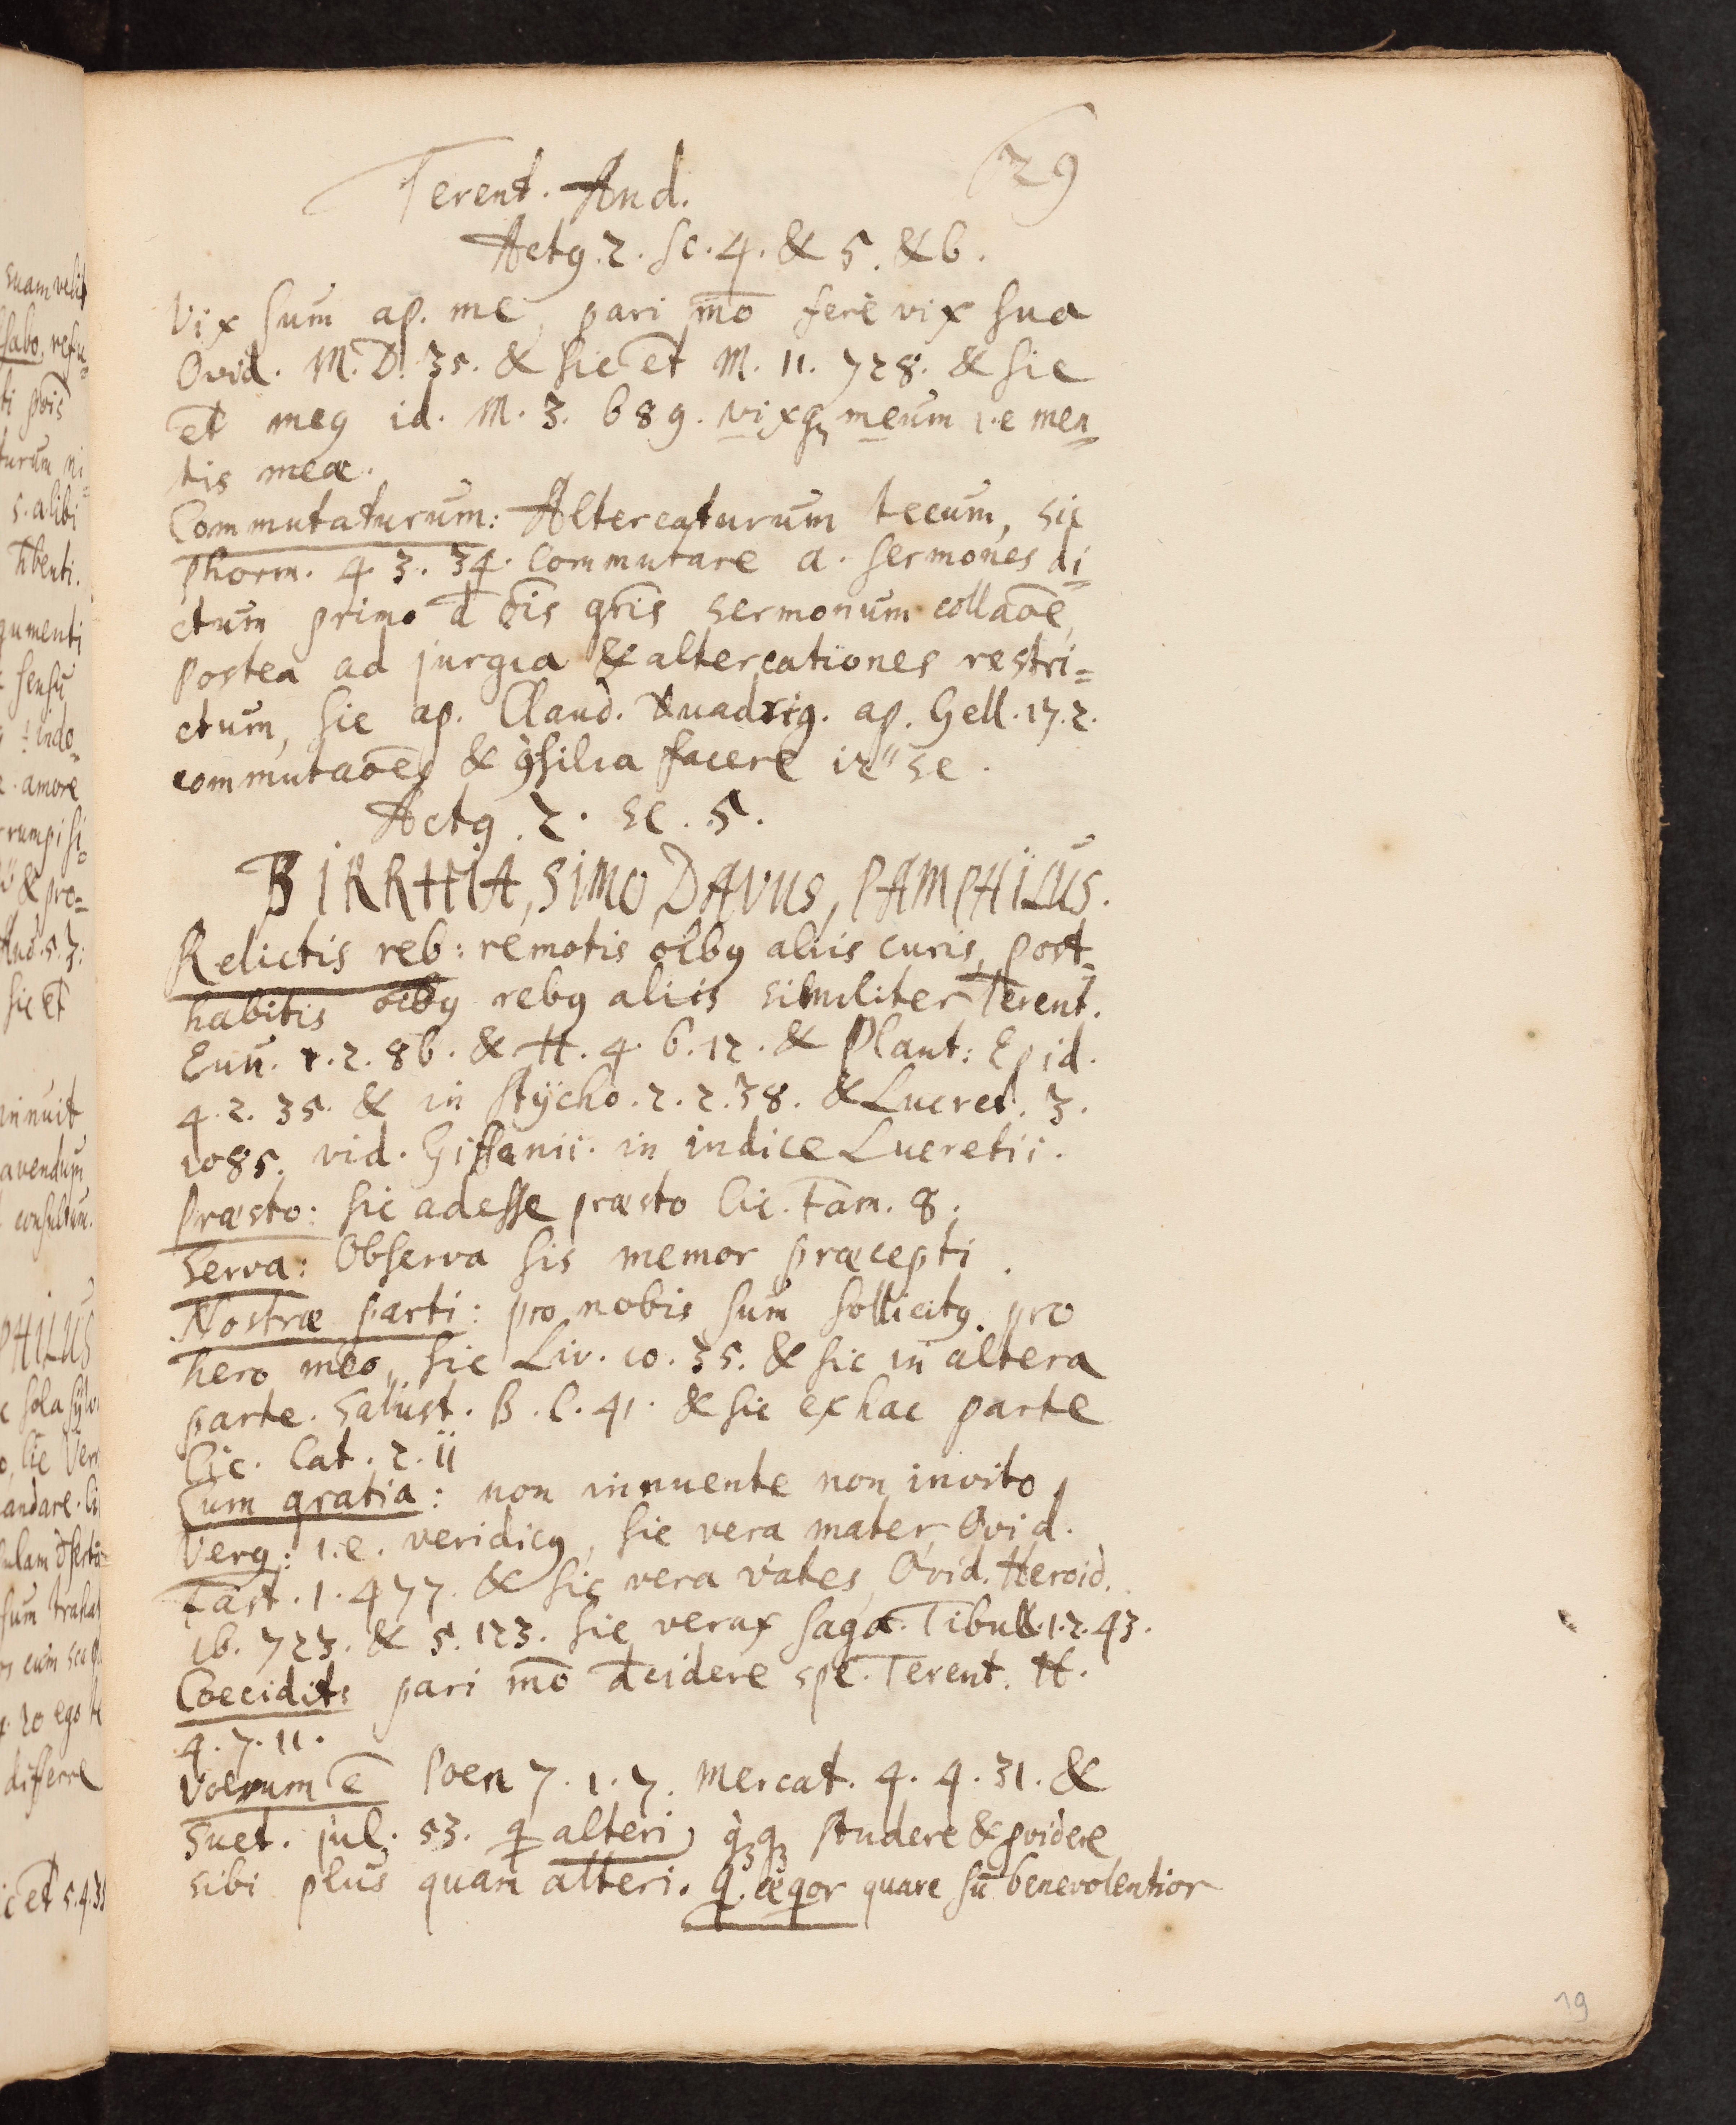 Terent. And.
29
Actꝯ. 2. sc. 4. & 5. & 6.
Vix sum ap. me, pari mō ferè vix sua
Ovid. M. D. 35. & sic et M. 11. 728. & sic
et meꝯ id. M. 3. 689. vixqꝫ meum i.e men
tis meæ.
Commutaturum: Altercaturum tecum, sic
Phorm. 4. 3. 34. Commutare a. sermones di=
ctum primo d ōis gñis sermonum collaōe,
postea ad jurgia & altercationes restri=
ctum, sic ap. Claud. Quadrig. ap. Gell. 17. 2.
commutaōes & ꝯsilia facere
Actꝯ. 2. sc. 5.
BIRRHIA, SIMO, DAVUS, PAMPHILUS.
Relictis reb: remotis oībꝯ aliis curis, post=
habitis oībꝯ rebꝯ aliis similiter Terent.
Eun. 1. 2. 86. & H. 4. 6. 12. & Plaut: Epid.
4. 2. 35. & in Stÿcho. 2. 2. 38. & Lucret. 3.
1085. vid. Giffanii. in indice Lucretii.
Præsto: sic adesse præsto Cic. Fam. 8.
Serva: Observa sis memor præcepti.
Nostræ parti: pro nobis sum sollicitꝯ. pro
hero meo, sic Liv. 10. 35. & sic in altera
parte. Salust. B. C. 41. & sic ex hac parte
Cic. Cat. 2. 11
Cum gratia: non innuente non invito,
Verꝯ: i.e. veridicꝯ, sic vera mater, Ovid.
Fast. 1. 477. & sic vera vates, Ovid. Heroid.
16. 723. & 5. 123. sic verax saga. Tibull. 1. 2. 43.
Coecidit: pari mō dcidere spe. Terent. H.
4. 7. 11.
Voerum ē Poen 7. 1. 7. Mercat. 4. 4. 31. &
Suet. jul. 53. q̄ alteri, studere & pvidere
sibi plus quam alteri. q. æqor quare sū benevolentior
19